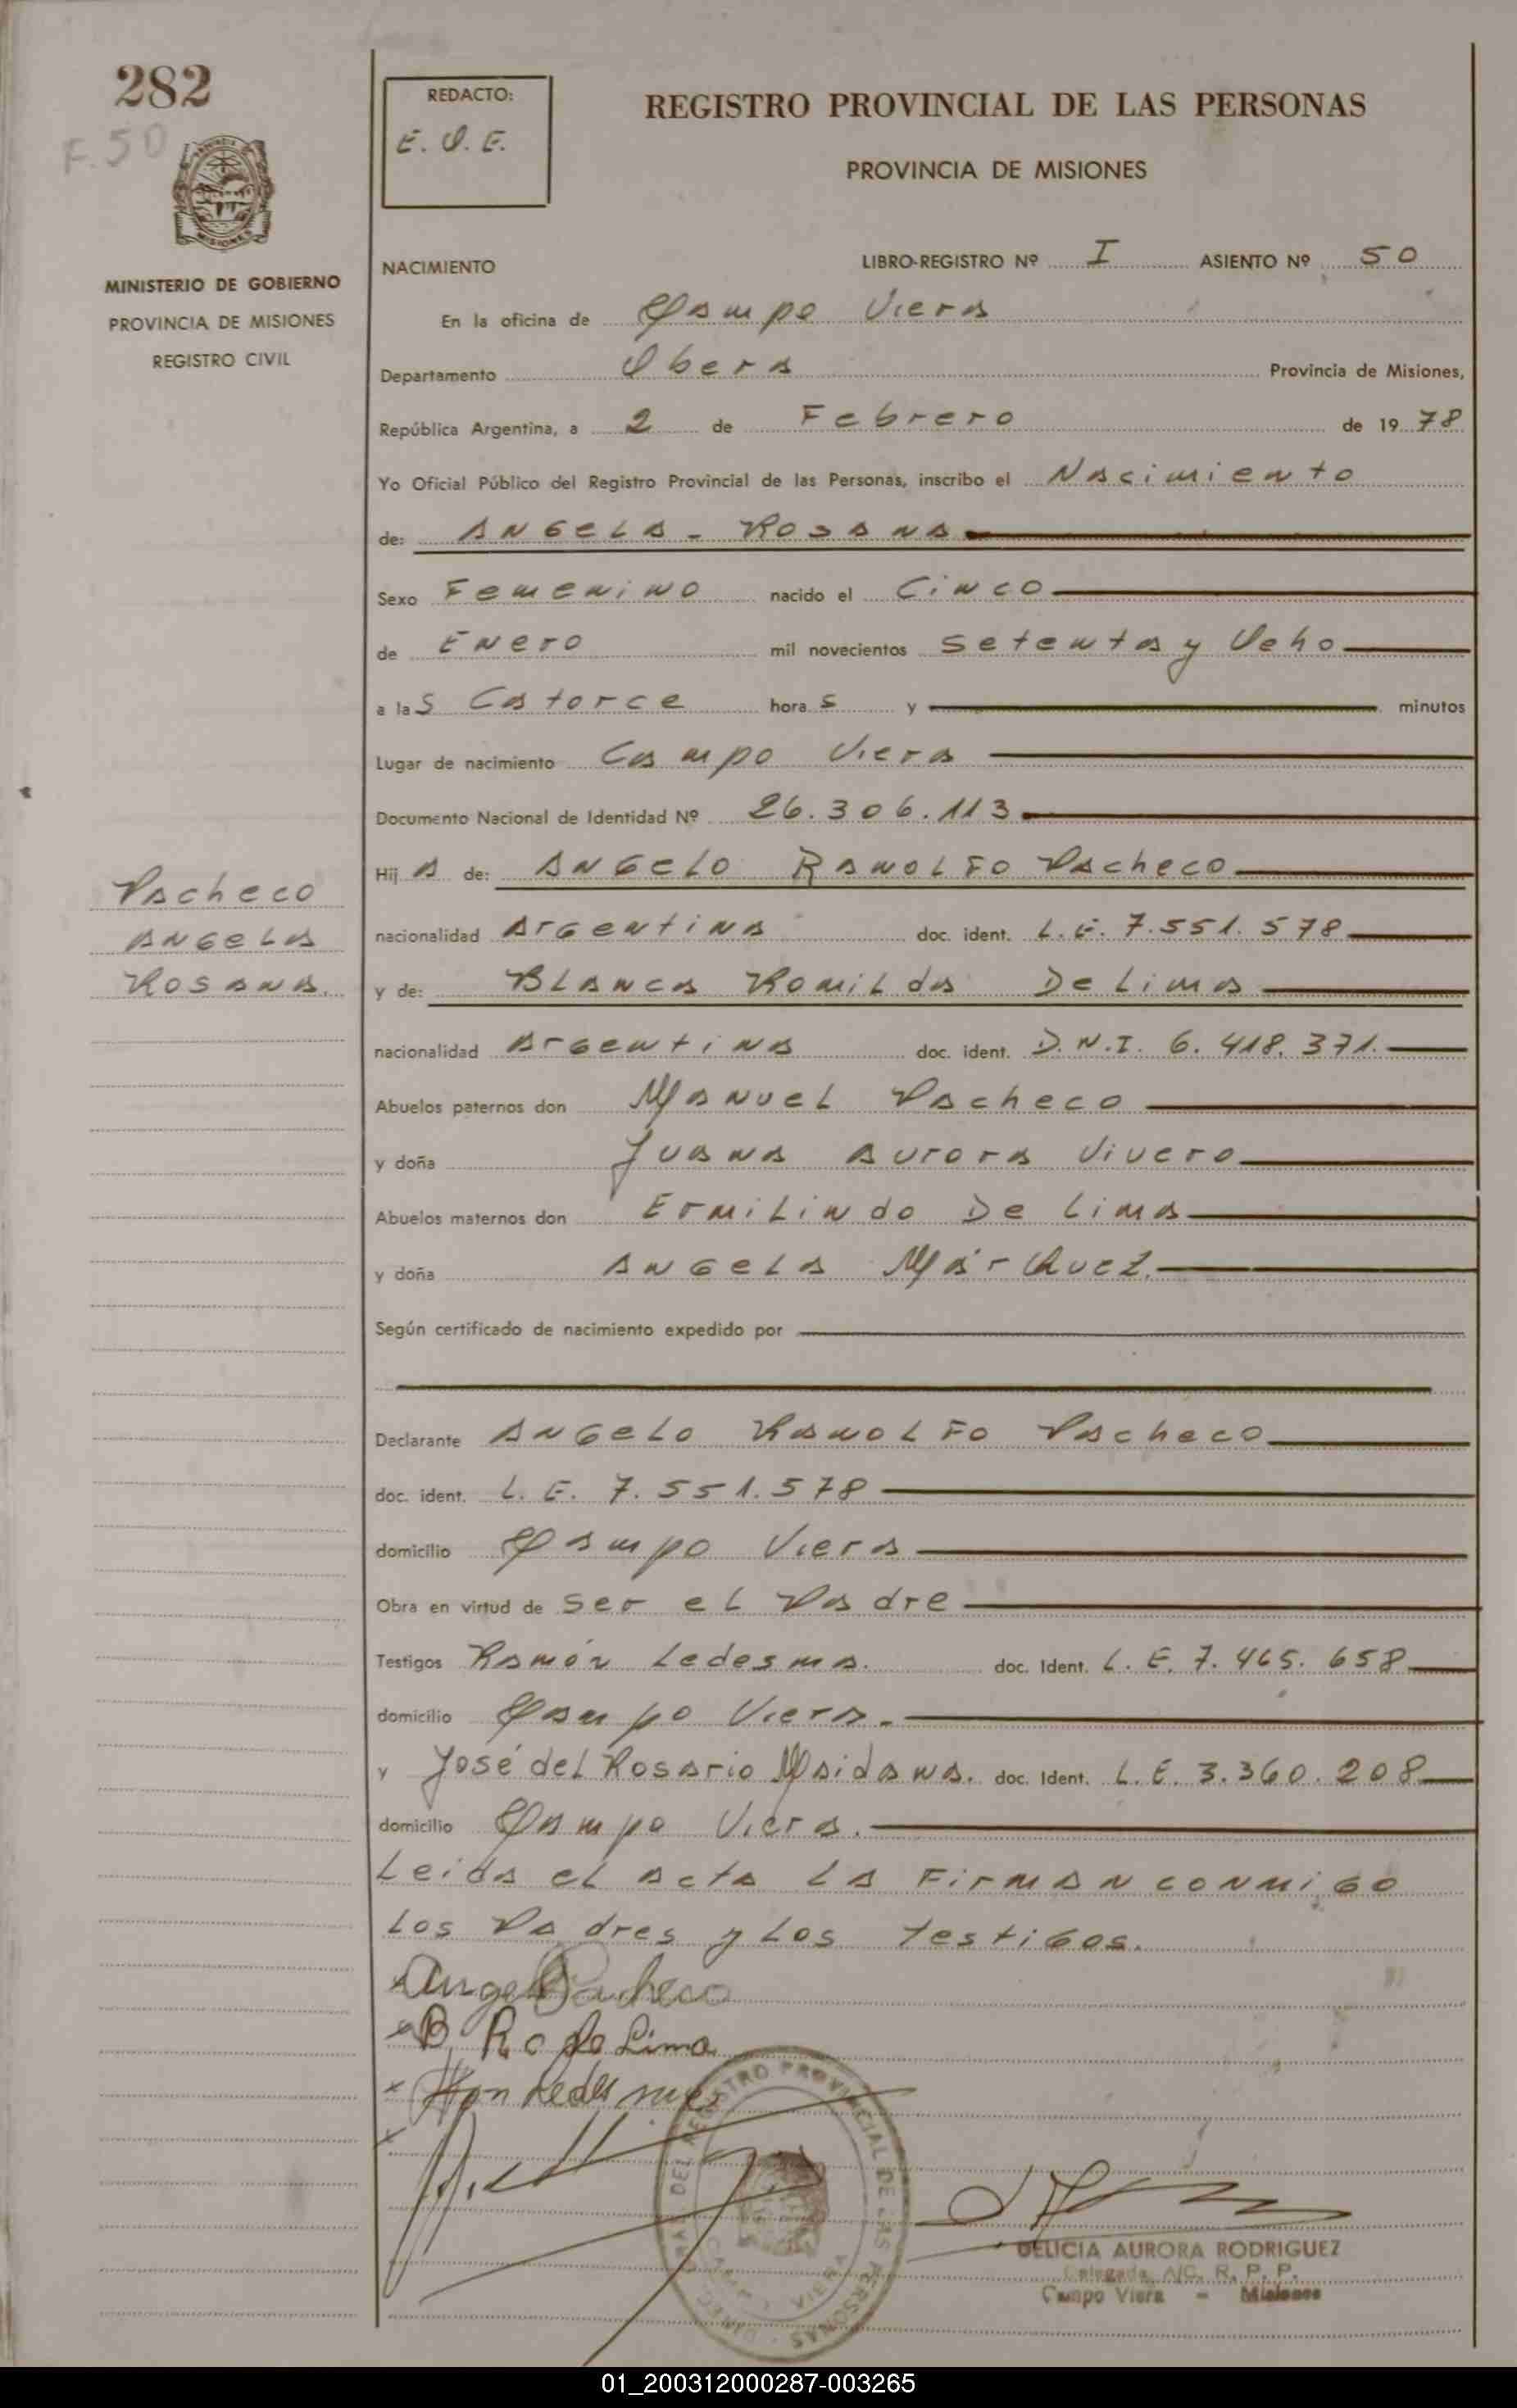 282
F. 50
MINISTERIO DE GOBIERNO
PROVINCIA DE MISIONES
REGISTRO CIVIL
REDACTO:
E. O. E.
REGISTRO PROVINCIAL DE LAS PERSONAS
PROVINCIA DE MISIONES
NACIMIENTO LIBRO-REGISTRO Nº I ASIENTO Nº 50
En la oficina de Campo Viera
Departamento Obera Provincia de Misiones,
República Argentina, a 2 de Febrero de 1978
Yo Oficial Público del Registro Provincial de las Personas, inscribo el Nacimiento
de: Angela - Rosana
Sexo Femenino nacido el Cinco
de Enero mil novecientos setenta y Ocho
a las Catorce horas y minutos
Lugar de nacimiento Campo Viera
Documento Nacional de Identidad Nº 26.306.113
Hija de: Angelo Ranolfo Pacheco
Pacheco
Angela
Rosana.
nacionalidad Argentina doc. ident. L.E. 7.551.578
y de: Blanca Romilda De Lima
nacionalidad Argentina doc. ident. D.N.I. 6.418.371.
Abuelos paternos don Manuel Pacheco
y doña Juana Aurora Vivero
Abuelos maternos don Ermilindo De Lima
y doña Angela Márquez.
Según certificado de nacimiento expedido por
Declarante Angelo Ranolfo Pacheco
doc. ident. L.E. 7.551.578
domicilio Campo Viera
Obra en virtud de ser el Padre
Testigos Ramón Ledesma. doc. Ident. L.E. 7.465.658
domicilio Campo Viera.
y José del Rosario Maidana. doc. Ident. L.E. 3.360.208
domicilio Campo Viera.
Leida el acta la firman conmigo
los Padres y los testigos.
Angel Pacheco
B Ro de Lima
DELICIA AURORA RODRIGUEZ
Delegada A/C. R. P. P.
Campo Viera - Misiones
01_200312000287-003265